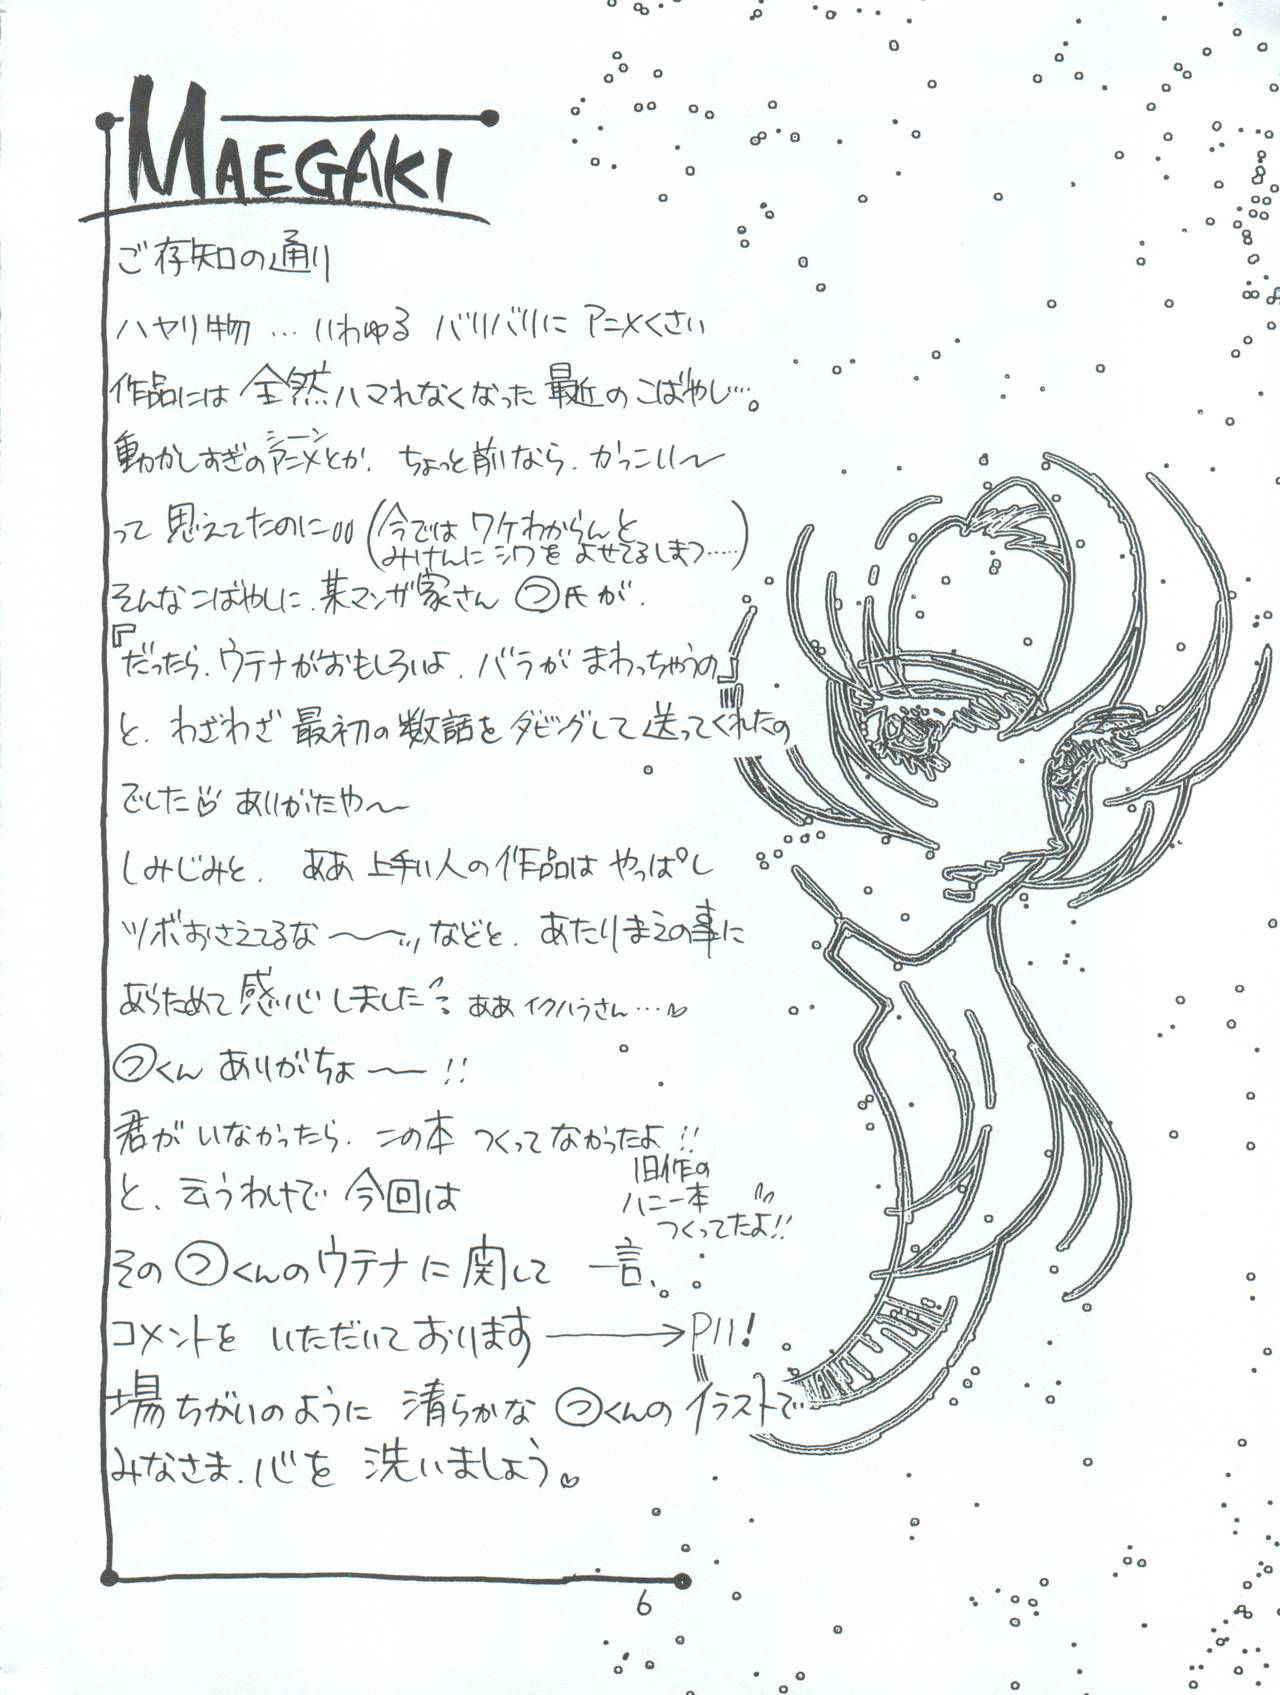 MAEGAKI
ご存知の通り
ハヤリ物…いわゆる バリバリに アニメくさい
作品には 全然ハマれなくなった 最近の こばやし…。
動かしすぎのアニメとか、ちょっと前なら、かっこいい〜
シーン
って 思えてたのに (今では ワケわからんと
みけんに シワを よせてるしまつ……)
そんなこばやしに、某マンガ家さん つ氏が、
『だったら、ウテナがおもしろいよ、バラが まわっちゃうの』
と、わざわざ 最初の数話を ダビングして 送ってくれたの
でした♡ ありがたや〜
しみじみと、 ああ 上手い人の 作品は やっぱし
ツボおさえてるな〜〜 などと、 あたりまえの事に
あらためて 感心しました ああ イクハラさん…♡
つくん ありがちょ〜!!
君が いなかったら、この本 つくってなかったよ!!
旧作の
ハニー本
つくってたよ!!
と、云うわけで 今回は
その つくんのウテナに 関して 一言、
コメントを いただいております → P11!
場ちがいのように 清らかな つくんの イラストで
みなさま、心を 洗いましょう。♡
6